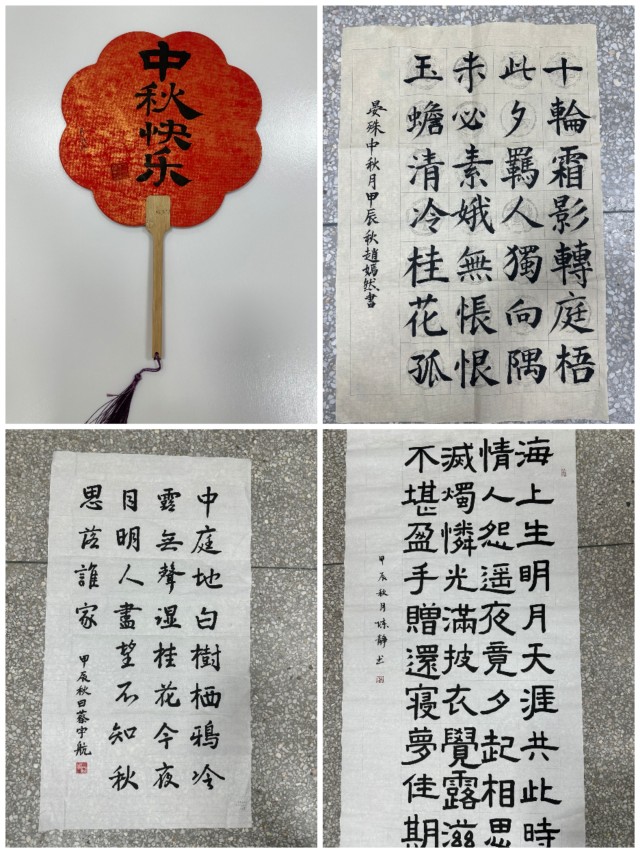 中秋快乐
十輪霜影轉庭梧
此夕羈人獨向隅
未必素娥無悵恨
玉蟾清冷桂花孤
晏殊中秋月甲辰秋趙嫣然書
中庭地白樹栖鴉冷
露無聲湿桂花今夜
月明人盡望不知秋
思落誰家
甲辰秋日蔡宇航
海上生明月天涯共此時
情人怨遥夜竟夕起相思
滅燭憐光滿披衣覺露滋
不堪盈手贈還寢夢佳期
甲辰秋月陈靜书